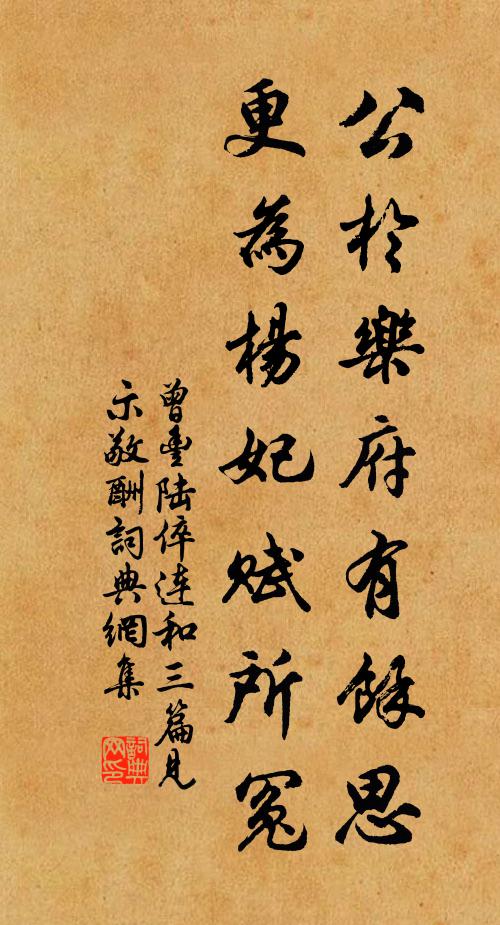 公於樂府有餘思
更為楊妃賦所冤
曾豐陸倅連和三篇見
示敬酬詞典網集
詞典
网印